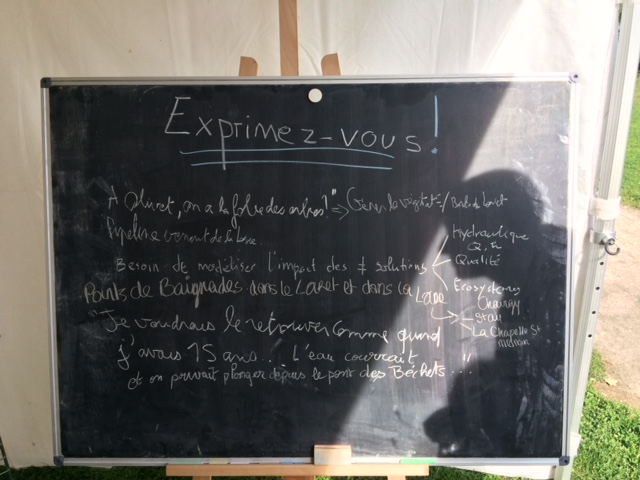 Exprimez-vous!
A Olivet, on a la folie des arbres!" => Gérer la végétaté / Bords de Loiret
Pipeline venant de la Loire
Besoin de modéliser l'impact des ≠ solutions
Hydraulique
Q, h
Qualité
Ecosystème
Points de Baignades dans le Loiret et dans la Loire
Chaingy
St Ay
La Chapelle St
mesmin
"Je voudrais le retrouver comme quand
j'avais 15 ans... L'eau courrait
et on pouvait plonger depuis le pont des Béchets..."